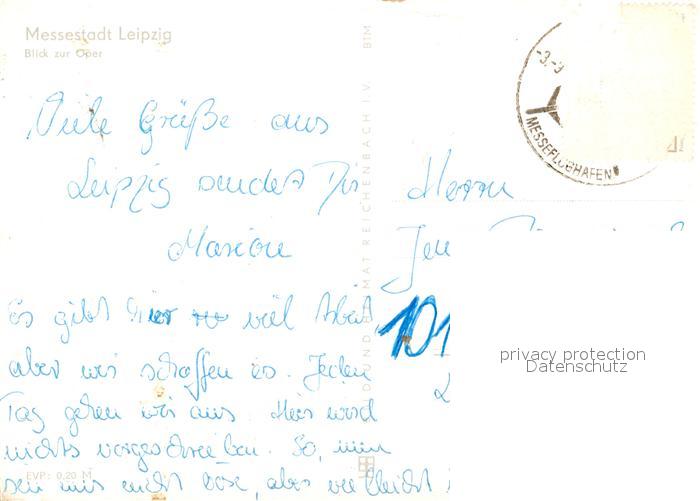 Messestadt Leipzig
Blick zur Oper
Viele Grüße aus
Leipzig sendet Dir
Marion
Es gibt hier viel Arbeit
aber wir schaffen es. Jeden
Tag gehen wir aus. Hier wird
nichts vorgeschrieben. So, nun
sei mir nicht böse, aber vielleicht
EVP: 0,20 M
BTM
BILD UND HEIMAT REICHENBACH I.V.
-3.-9
MESSEFLUGHAFEN
Herrn
Jen
101
privacy protection
Datenschutz